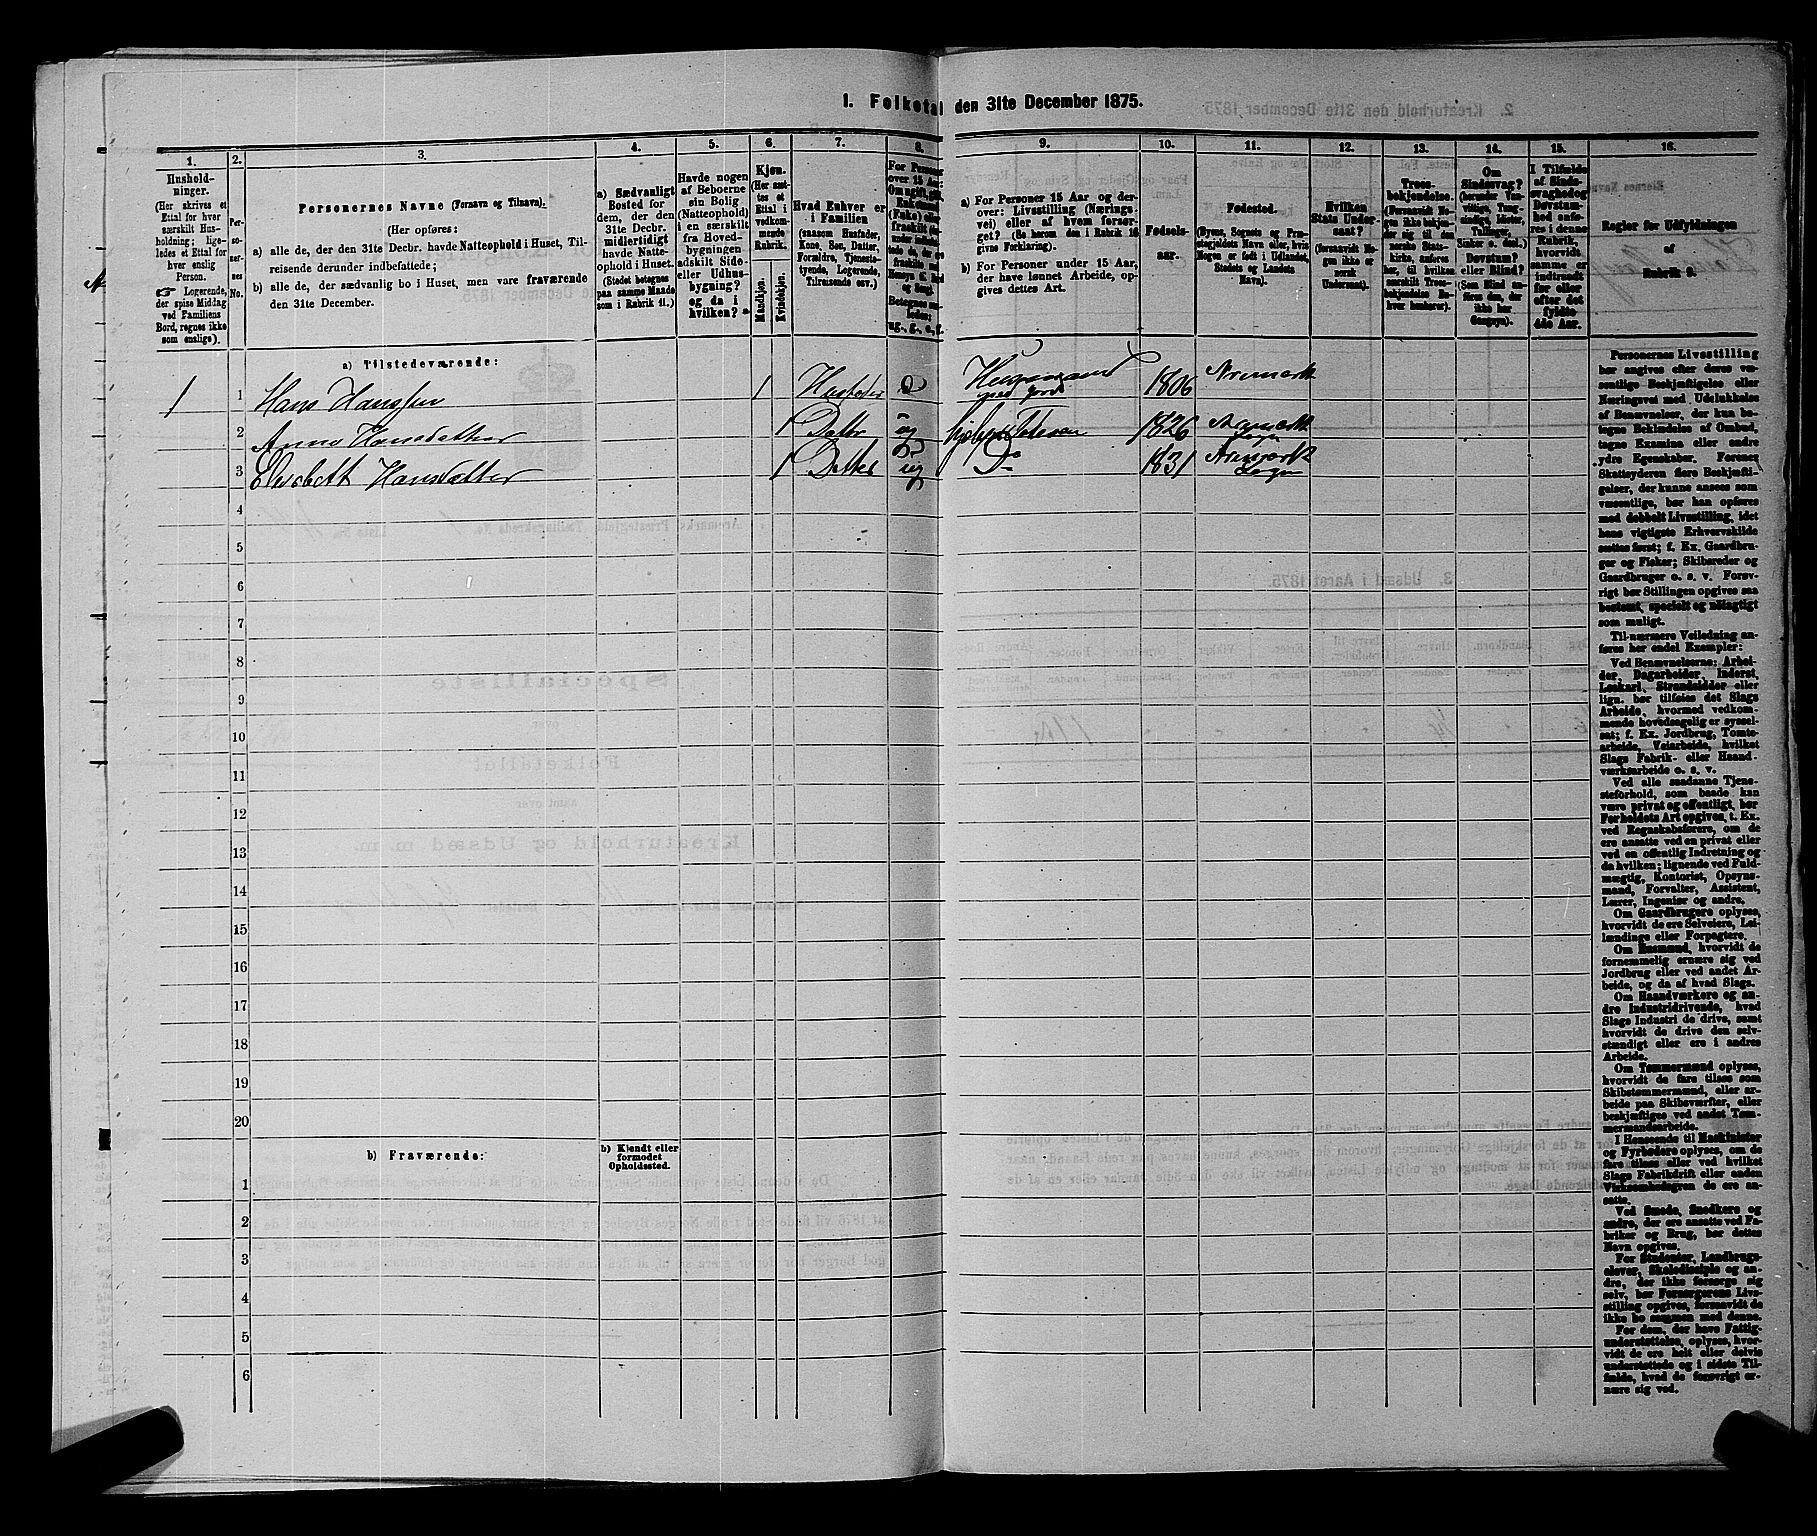 1. Folketal den 31te December 1875.
1. 2. 3. 4. 5. 6. 7. 8. 9. 10. 11. 12. 13. 14. 15. 16.
Hushold-
ninger.
(Her skrives et
Ettal for hver
særskilt Hus-
holdning; lige-
ledes et Ettal for
hver enslig
Person.
☞ Logerende,
der spise Middag
ved Familiens
Bord, regnes ikke
som enslige).
Per-
so-
ner-
nes
No.
Personernes Navne (Fornavn og Tilnavn).
(Her opføres:
a) alle de, der den 31te Decbr. havde Natteophold i Huset, Til-
reisende derunder indbefattede;
b) alle de, der sædvanlig bo i Huset, men vare fraværende
den 31te December.
a) Sædvanligt
Bosted for
dem, der den
31te Decbr.
midlertidigt
havde Natte-
ophold i Huset.
(Stedet betegnes
paa samme Maade
som i Rubrik 11.)
Havde nogen
af Beboerne
sin Bolig
(Natteophold)
i en særskilt
fra Hoved-
bygningen
adskilt Side-
eller Udhus-
bygning?
og da i
hvilken?
Kjøn.
(Her sæt-
tes et
Ettal i
vedkom-
mende
Rubrik.
Mandkjøn.
Kvindekjøn.
Hvad Enhver er
i Familien
(saasom Husfader,
Kone, Søn, Datter,
Forældre, Tjeneste-
tyende, Logerende,
Tilreisende osv.)
For Personer
over 15 Aar:
a) For Personer 15 Aar og der-
over: Livsstilling (Nærings-
vei) eller af hvem forsør-
get? (Se herom den i Rubrik 16
givne Forklaring).
b) For Personer under 15 Aar,
der have lønnet Arbeide, op-
gives dettes Art.
Fødsels-
aar.
Fødested.
(Byens, Sognets og Præ-
stegjeldets Navn eller, hvis
Nogen er født i Udlandet,
Stedets og Landets
Navn).
Hvilken
Stats Under-
saat?
(forsaavidt No-
gen ikke er
norsk
Undersaat).
Troes-
bekjendelse.
Om
Sindssvag?
Døvstum?
eller Blind?
I Tilfælde
af Sinds-
svaghed og
Døvstum-
hed anfø-
res i denne
Rubrik,
hvorvidt
samme er
indtraadt
før eller
efter det
fyldte
4de Aar.
Regler for Udfyldningen
af
Rubrik 9.
a) Tilstedeværende:
1 1 Hans Hanssen 1 Husfader Husmand med jord 1806 Aremark
2 Anna Hansdatter 1 Datter ug 1826 Aremark Sogn
3 Elisabett Hansdatter 1 Datter ug Do 1831 Aremark Sogn
4
5
6
7
8
9
10
11
12
13
14
15
16
17
18
19
20
b) Fraværende:
b) Kjendt eller
formodet
Opholdssted.
1
2
3
4
5
6
Personernes Livsstilling
bør angives efter deres væ-
sentlige Beskjæftigelse eller
Næringsvei med Udelukkelse
af Benævnelser, der kun be-
tegne Beklædelse af Ombud,
tagne Examina eller andre
ydre Egenskaber. Forener
Skatteyderen flere Beskjæfti-
gelser, der kunne ansees som
væsentlige, bør han opføres
med dobbelt Livsstilling, idet
hans vigtigste Erhvervskilde
sættes først; f. Ex. Gaardbru-
ger og Fisker; Skibsreder og
Gaardbruger o. s. v. Forøv-
rigt bør Stillingen opgives saa
bestemt, specielt og nøiagtigt
som muligt.
Til nærmere Veiledning an-
føres her endel Exempler:
Ved Benævnelserne: Arbei-
der, Dagarbeider, Inderst,
Løskarl, Strandsidder eller
lign. bør tilføies det Slags
Arbeide, hvormed vedkom-
mende hovedsagelig er syssel-
sat; f. Ex. Jordbrug, Tomte-
arbeide, Veiarbeide, hvilket
Slags Fabrik- eller Haand-
værksarbeide o. s. v.
Ved alle saadanne Tjene-
steforhold, som baade kan
være privat og offentligt, bør
Forholdets Art opgives, t. Ex.
ved Regnskabsførere, om de
ere ansatte ved en privat eller
ved en offentlig Indretning og
da hvilken; lignende ved Fuld-
mægtig, Kontorist, Opsyns-
mand, Forvalter, Assistent,
Lærer, Ingeniør og andre.
Om Gaardbrugere oplyses,
hvorvidt de ere Selveiere, Lei-
lændinge eller Forpagtere.
Om Husmænd, hvorvidt de
fornemmelig ernære sig ved
Jordbrug eller ved andet Ar-
beide, og da af hvad Slags.
Om Haandværkere og an-
dre Industridrivende, hvad
Slags Industri de drive, samt
hvorvidt de drive den selv-
stændigt eller ere i andres
Arbeide.
Om Tømmermænd oplyses,
hvorvidt de fare tilsøs som
Skibstømmermænd, eller ar-
beide paa Skibsværfter, eller
beskjæftiges ved andet Tøm-
mermandsarbeide.
I Henseende til Maskinister
og Fyrbødere oplyses, om de
fare tilsøs eller ved hvilket
Slags Fabrikdrift eller anden
Virksomhedsgren de ere an-
satte.
Ved Smede, Snedkere og
andre, der ere ansatte ved Fa-
briker og Brug, bør dettes
Navn opgives.
For Studenter, Landbrugs-
elever, Skoledisciple og an-
dre, der ikke forsørge sig
selv, bør Forsørgerens Livs-
stilling opgives, forsaavidt de
ikke bo sammen med denne.
For dem, der have Fattig-
understøttelse, oplyses, hvor-
vidt de ere helt eller delvis
understøttede og i sidste Til-
fælde, hvad de forøvrigt er-
nære sig ved.